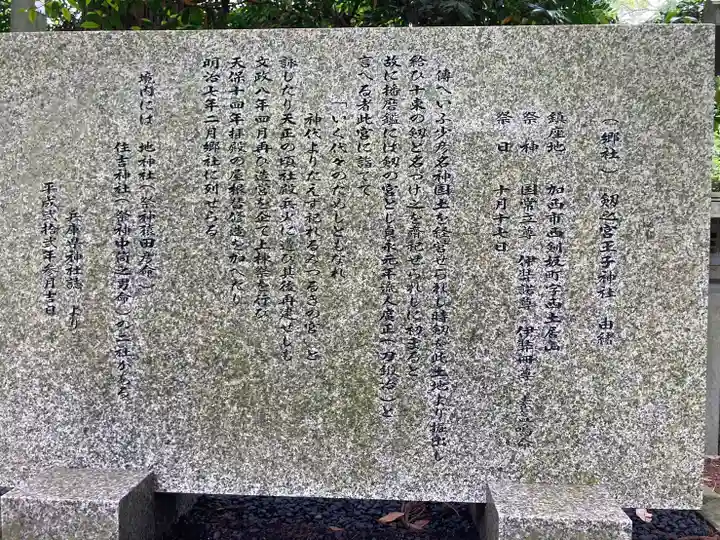 (郷社) 剱之宮王子神社 由緒
鎮座地 加西市西剣坂町字西土居山
祭神 国常立尊 伊弉諾尊 伊弉冊尊
祭日 十月十七日
傳へいふ少彦名神国土を経営せられし時剱を此土地より掘出し
給ひ十束の剱と名づけ之を斎祀せられしに初まると
故に播磨鑑には剱の宮とし貞永元年流人唐正(刀鍛冶)と
言へる者此宮に詣でて
「いく代々のためしともなれ
神代よりたえず祀れる つるぎの宮」と
詠したり天正の頃社殿兵火に遭ひ其後再建せしも
文政八年四月再び造宮を企て上棟祭を行ひ
天保十四年拝殿の屋根替修造を加へたり
明治七年二月郷社に列せらる
境内には 地神社(祭神猿田彦命)
住吉神社(祭神中筒之男命)の二社がある
兵庫県神社誌 より
平成弐拾弐年参月吉日